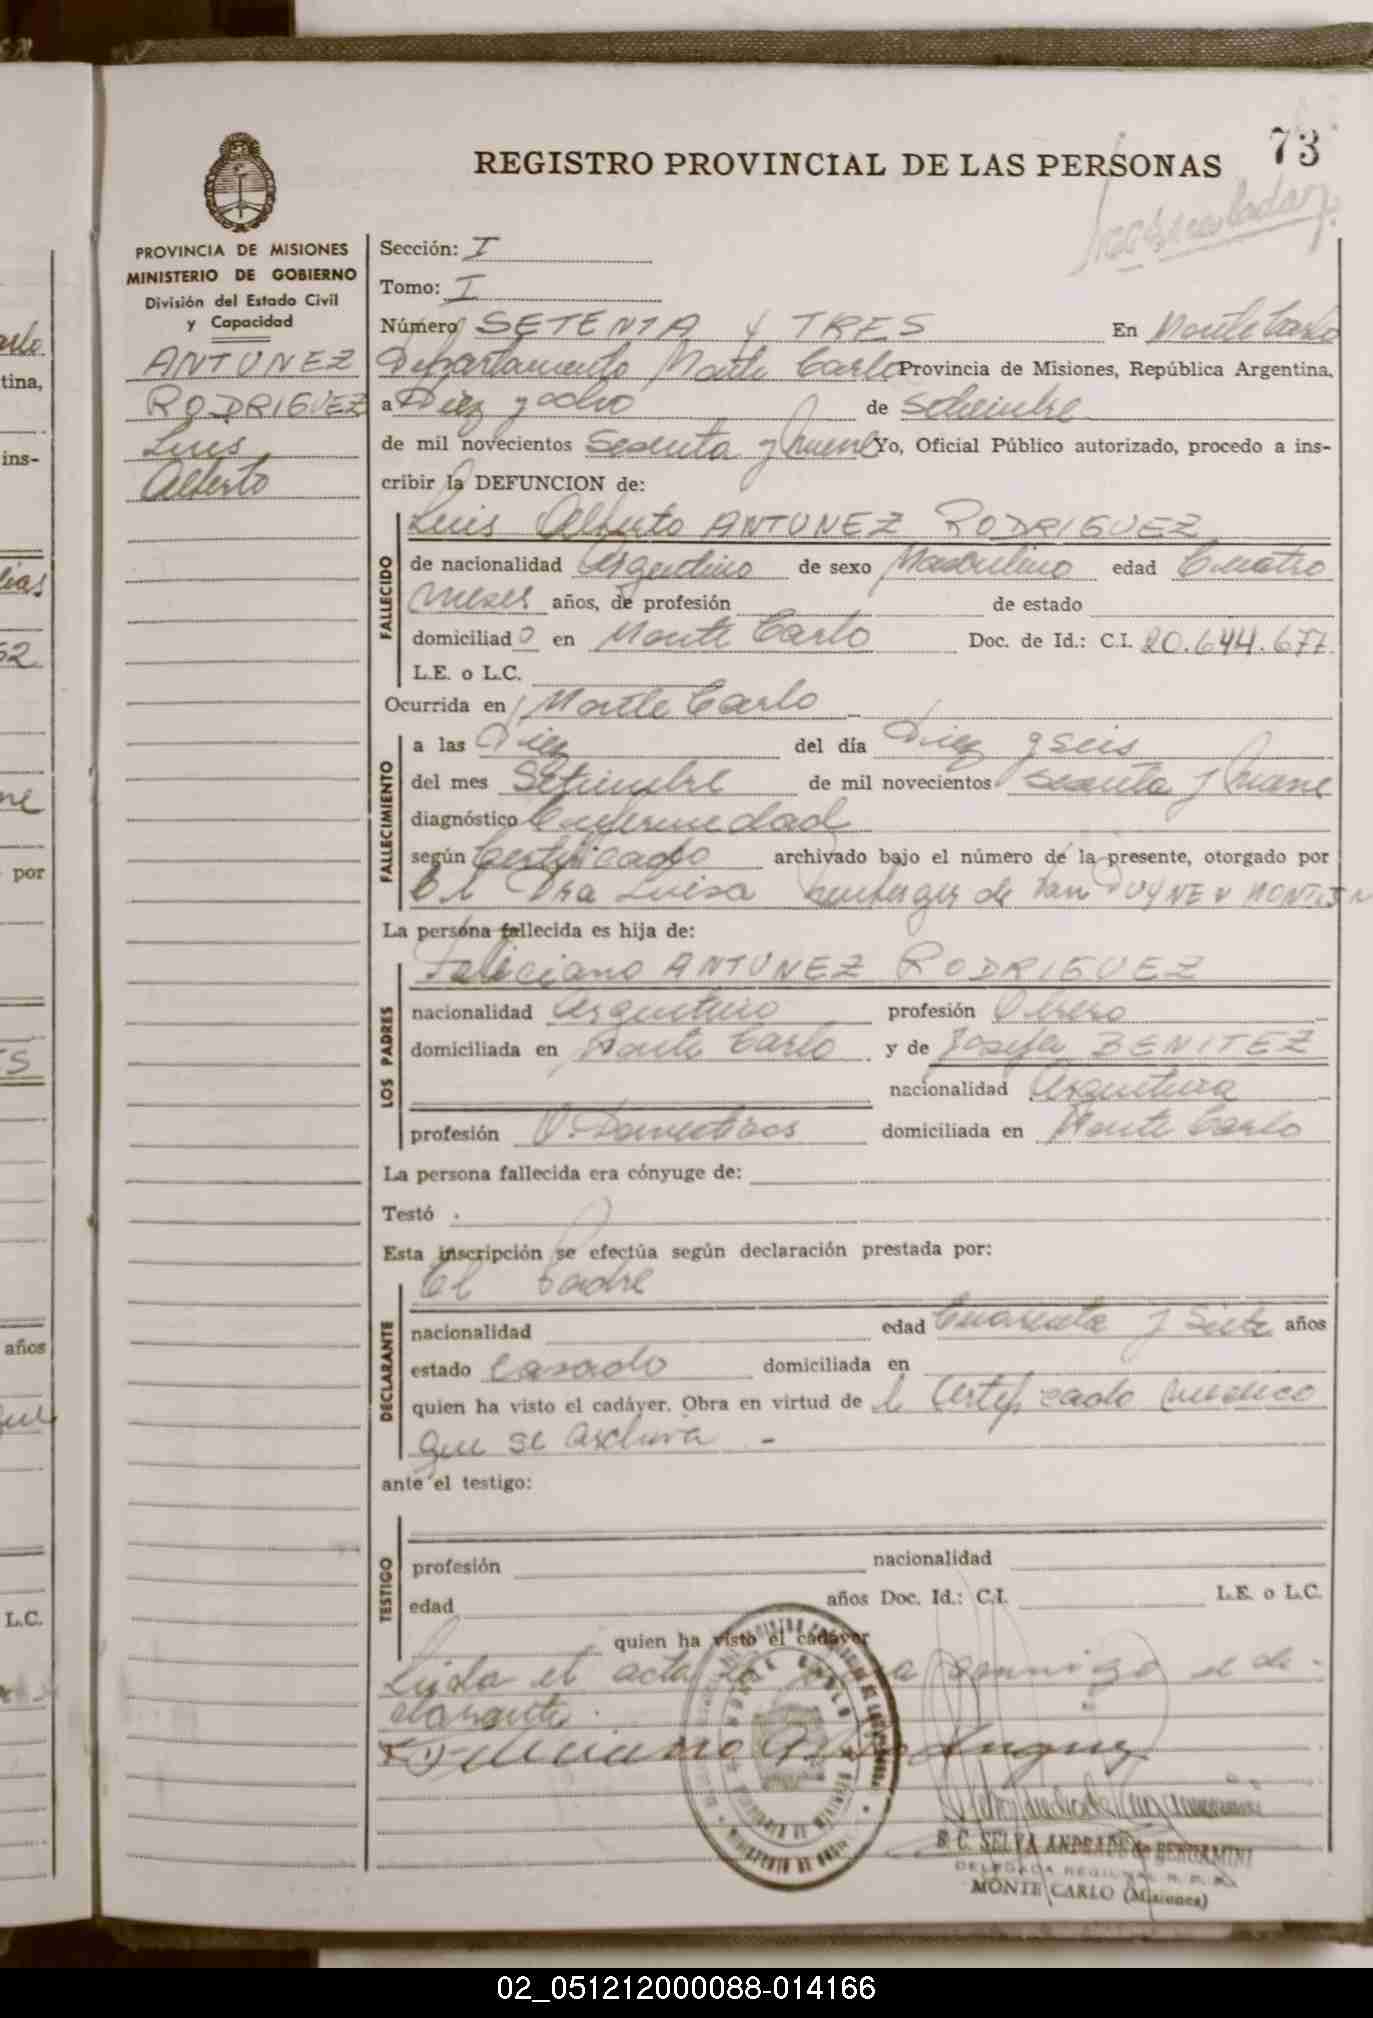 73
REGISTRO PROVINCIAL DE LAS PERSONAS
PROVINCIA DE MISIONES
MINISTERIO DE GOBIERNO
División del Estado Civil
y Capacidad
ANTUNEZ
RODRIGUEZ
Luis
Alberto
Sección: I
Tomo: I
Número SETENTA Y TRES En Monte Carlo
Departamento Monte Carlo Provincia de Misiones, República Argentina,
a Diez y ocho de Setiembre
de mil novecientos Sesenta y Nueve Yo, Oficial Público autorizado, procedo a ins-
cribir la DEFUNCION de:
FALLECIDO
Luis Alberto ANTUNEZ RODRIGUEZ
de nacionalidad Argentino de sexo Masculino edad Cuatro
meses años, de profesión de estado
domiciliado en Monte Carlo Doc. de Id.: C.I. 20.644.677
L.E. o L.C.
Ocurrida en Monte Carlo
FALLECIMIENTO
a las Diez del día Diez y seis
del mes Setiembre de mil novecientos sesenta y Nueve
diagnóstico Enfermedad
según Certificado archivado bajo el número de la presente, otorgado por
El Dra Luisa de Van
La persona fallecida es hija de:
LOS PADRES
Feliciano ANTUNEZ RODRIGUEZ
nacionalidad Argentino profesión Obrero
domiciliada en Monte Carlo y de Josefa BENITEZ
nacionalidad Argentina
profesión Q. Domesticos domiciliada en Monte Carlo
La persona fallecida era cónyuge de:
Testó
Esta inscripción se efectúa según declaración prestada por:
DECLARANTE
El Padre
nacionalidad edad Cuarenta y Siete años
estado casado domiciliada en
quien ha visto el cadáver. Obra en virtud de l Certificado medico
que se archiva -
ante el testigo:
TESTIGO
profesión nacionalidad
edad años Doc. Id.: C.I. L.E. o L.C.
quien ha visto el cadáver
Leida el acta la conmigo el de-
clarante.
Feliciano
B. C. SELVA ANDRADE de BERGAMINI
DELEGADA REGIONAL R. P. P.
MONTE CARLO (Misiones)
arlo
tina,
ins-
lias
62
por
años
L.C.
02_051212000088-014166